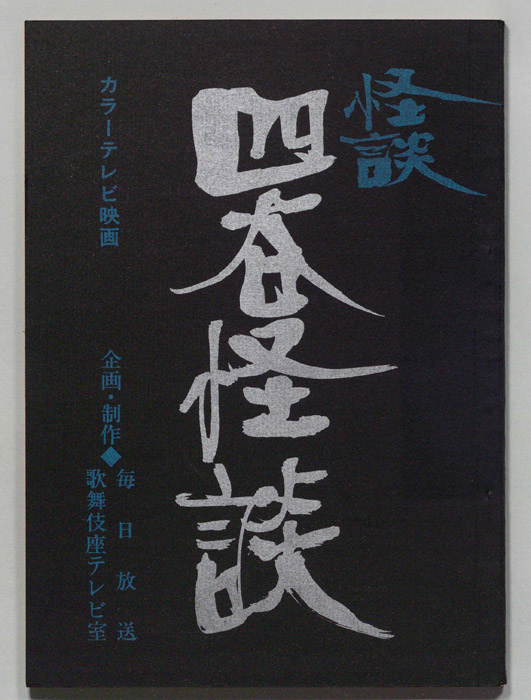 怪談
四谷怪談
カラーテレビ映画
企画・制作◆毎日放送
歌舞伎座テレビ室